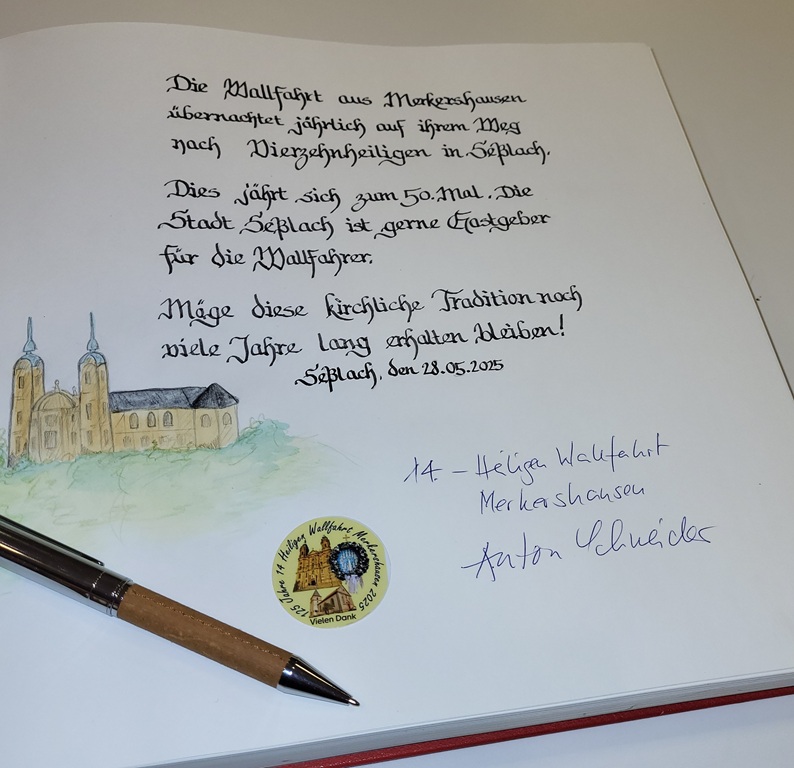 Die Wallfahrt aus Merkershausen
übernachtet jährlich auf ihrem Weg
nach Vierzehnheiligen in Seßlach.
Dies jährt sich zum 50. Mal. Die
Stadt Seßlach ist gerne Gastgeber
für die Wallfahrer.
Möge diese kirchliche Tradition noch
viele Jahre lang erhalten bleiben!
Seßlach, den 28.05.2025
14. – Heiligen Wallfahrt
Merkershausen
Anton Schneider
125 Jahre 14 Heiligen Wallfahrt Merkershausen 2025
Vielen Dank